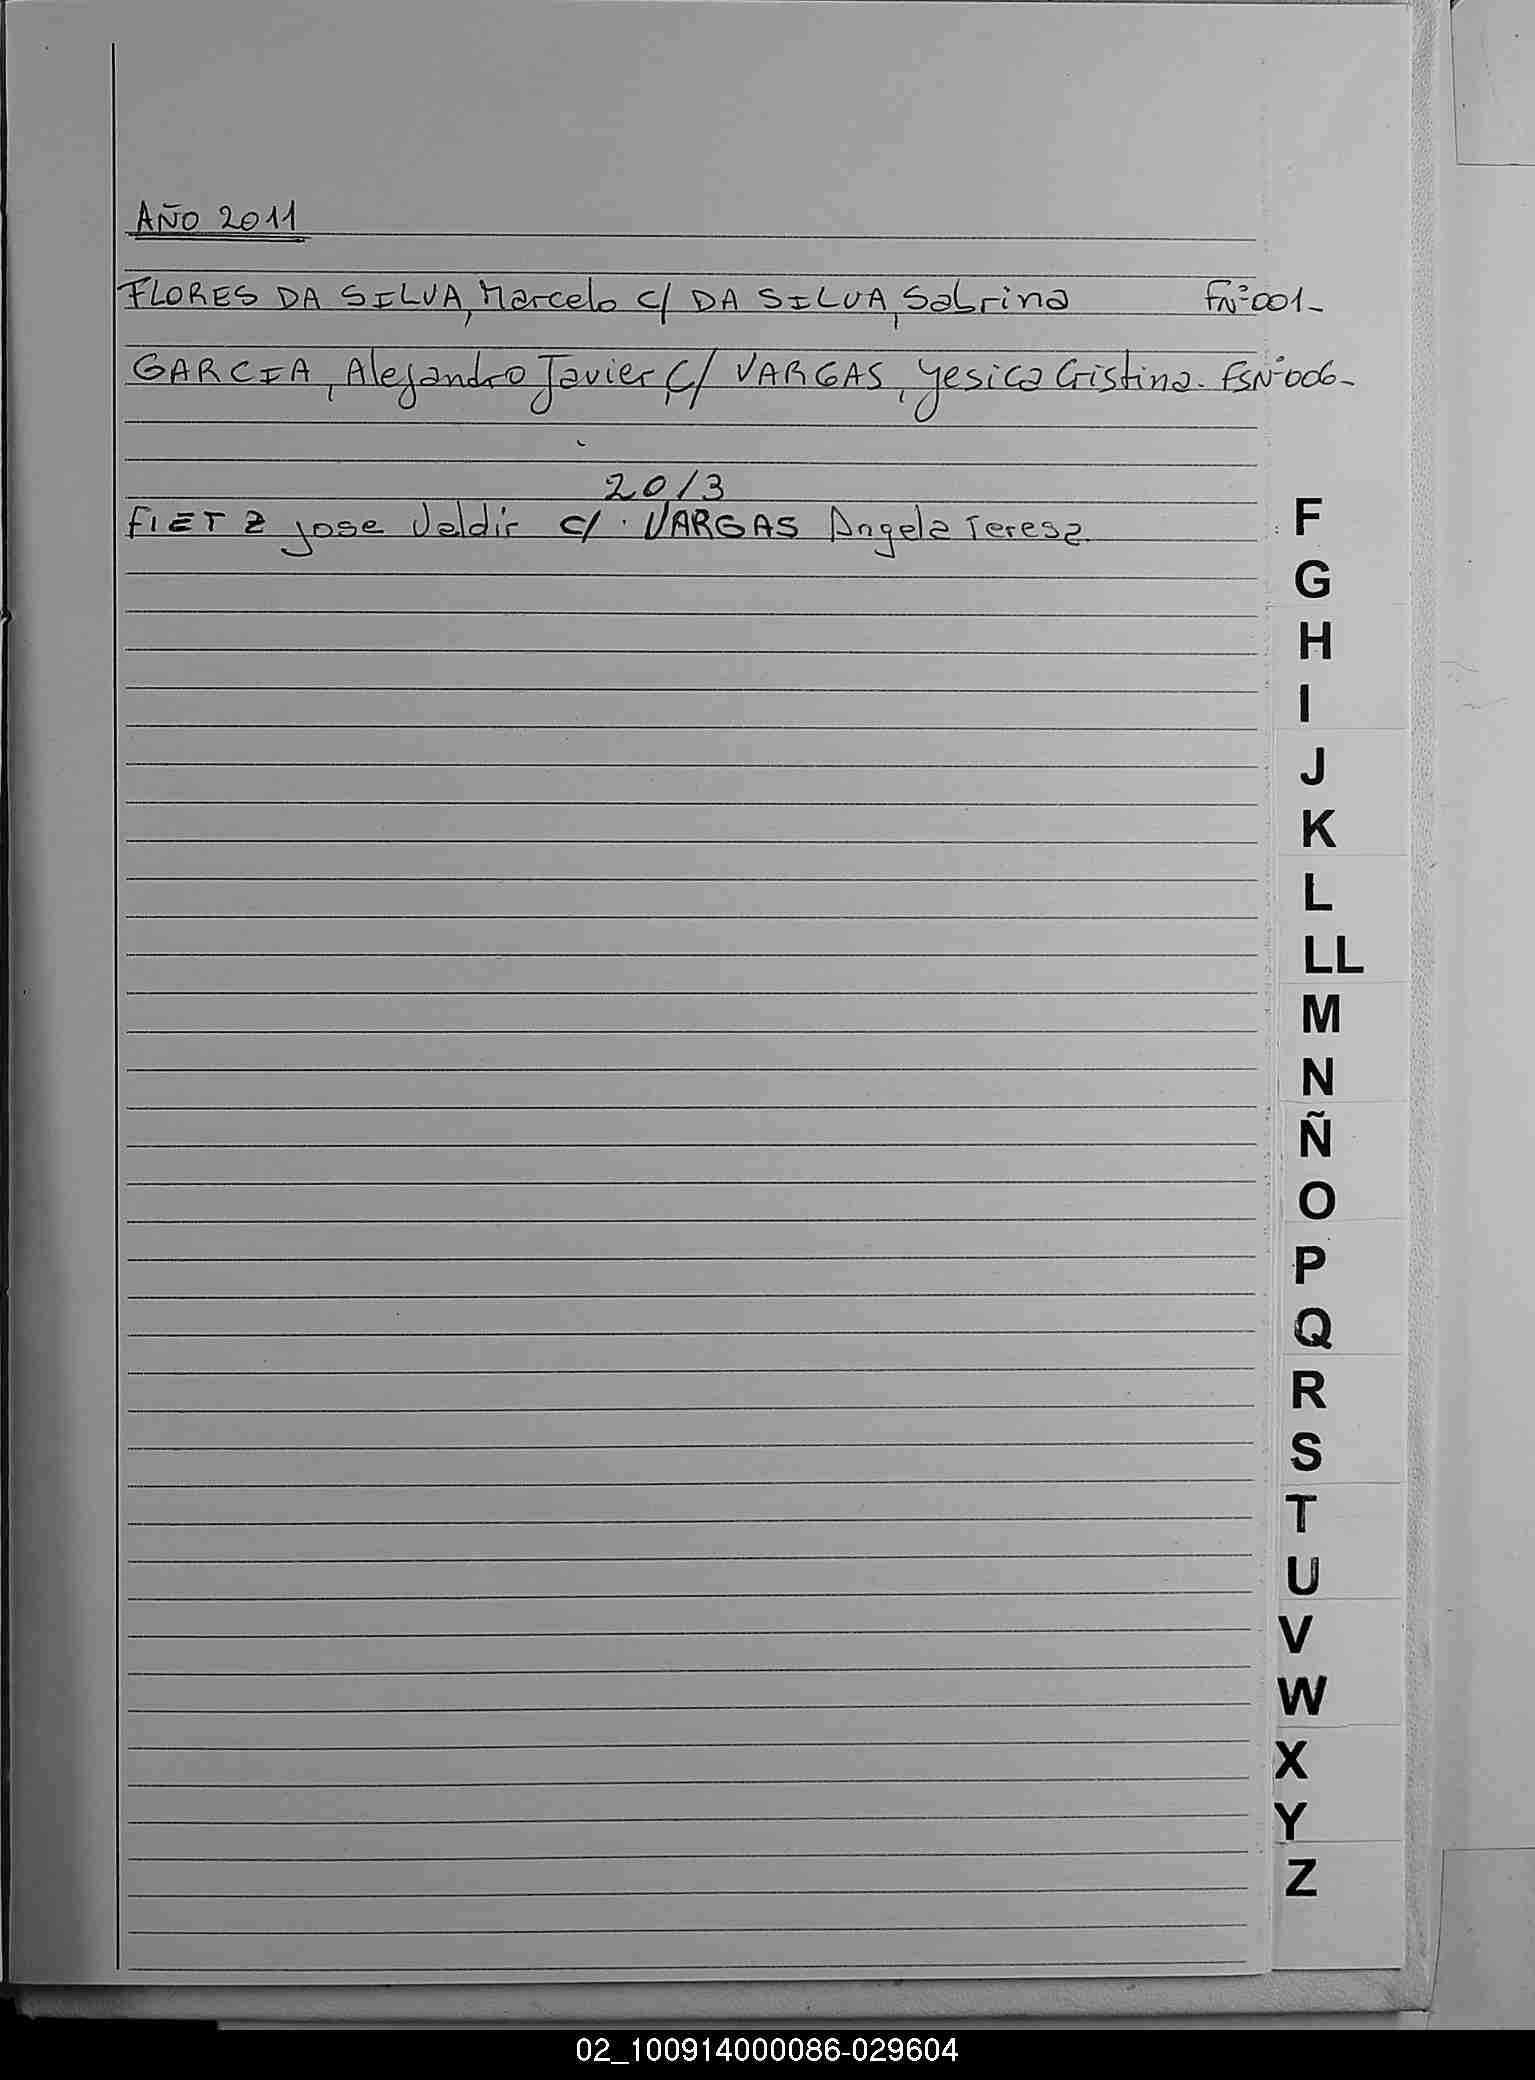 AÑO 2011
FLORES DA SILVA, Marcelo c/ DA SILVA, Sabrina FNº001-
GARCIA, Alejandro Javier, c/ VARGAS, Yesica Cristina. FSNº006-
2013
FIETZ Jose Valdir c/. VARGAS Angela Teresa.
F
G
H
I
J
K
L
LL
M
N
Ñ
O
P
Q
R
S
T
U
V
W
X
Y
Z
02_100914000086-029604